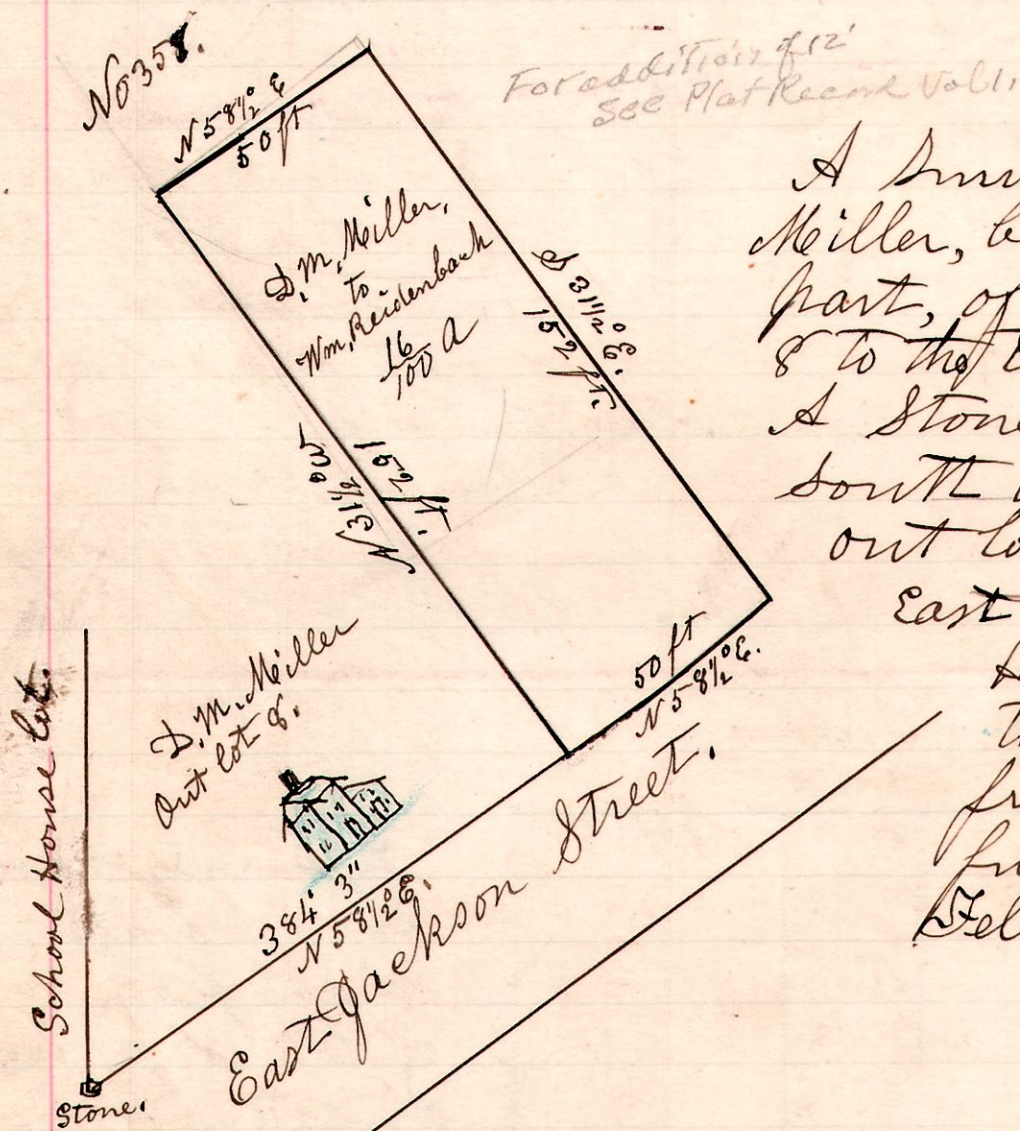 No 358.
For addition of 12'
See Plat Record Vol 1,
N 58½° E
50 ft
D. M. Miller,
to
Wm. Reidenbach
16/100 A
S 31½° E.
152 ft.
N 31½° W
152 ft.
50 ft
N 58½° E.
D. M. Miller
Out Lot 8.
384' 3"
N 58½° E.
East Jackson Street.
School House Lot.
Stone.
A
Miller,
part, of
8 to the
A Stone
South
out
East